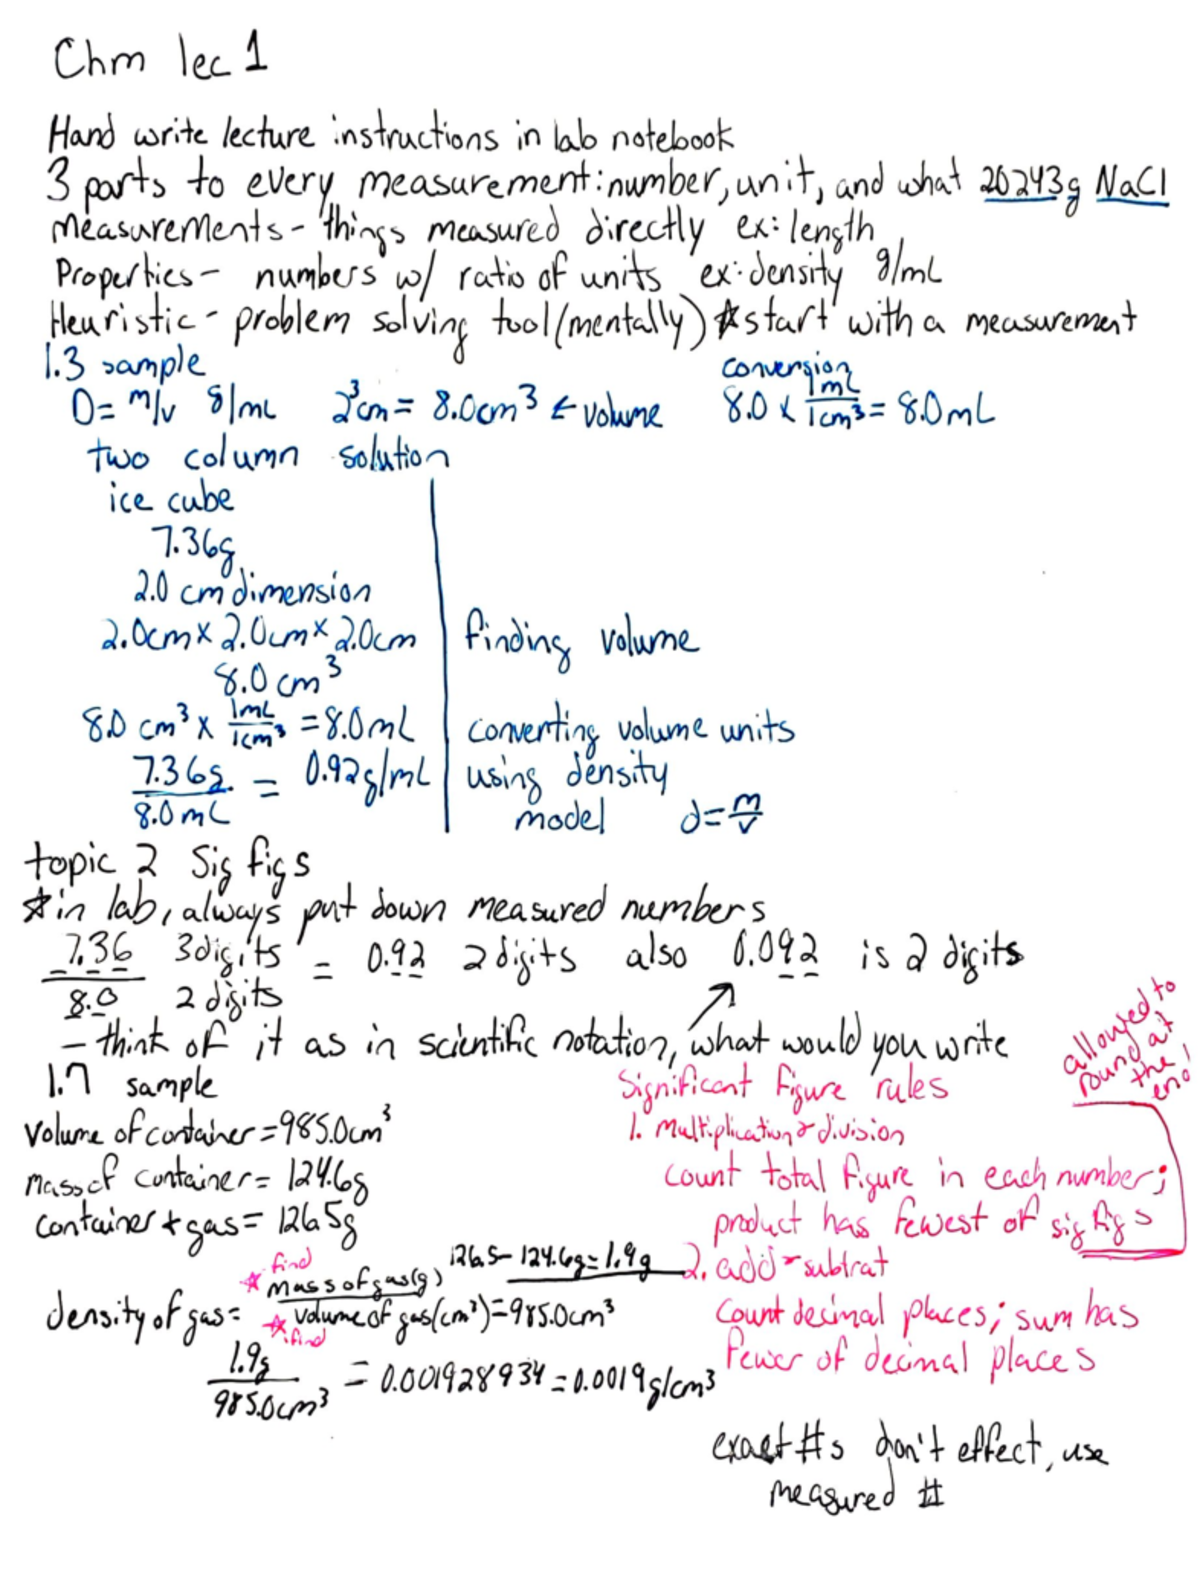 Chm lec 1
Hand write lecture instructions in lab notebook
3 parts to every measurement: number, unit, and what 20.243g NaCl
Measurements - things measured directly ex: length
Properties - numbers w/ ratio of units ex: density g/mL
Heuristic - problem solving tool (mentally) ☆start with a measurement
1.3 sample
D= m/v g/mL 2³cm = 8.0cm³ ← volume
conversion
8.0 x 1mL/1cm³ = 8.0mL
two column solution
ice cube
7.36g
2.0 cm dimension
2.0cm x 2.0cm x 2.0cm finding volume
8.0 cm³
8.0 cm³ x 1mL/1cm³ = 8.0mL converting volume units
7.36g/8.0mL = 0.92g/mL using density
model d=m/v
topic 2 Sig figs
☆in lab, always put down measured numbers
7.36 3digits / 8.0 2 digits = 0.92 2 digits also 0.092 is 2 digits
- think of it as in scientific notation, what would you write
1.7 sample
Volume of container = 985.0cm³
Mass of container = 124.6g
container + gas = 126.5g
find
☆ mass of gas(g) 126.5 - 124.6g = 1.9g
density of gas= volume of gas(cm³) = 985.0cm³
☆ find
1.9g/985.0cm³ = 0.001928934 = 0.0019g/cm³
Significant figure rules
1. Multiplication & division
count total figure in each number;
product has fewest of sig figs
allowed to
round at
the
end!
2. add & subtrat
Count decimal places; sum has
fewer of decimal places
exact #s don't effect, use
measured #